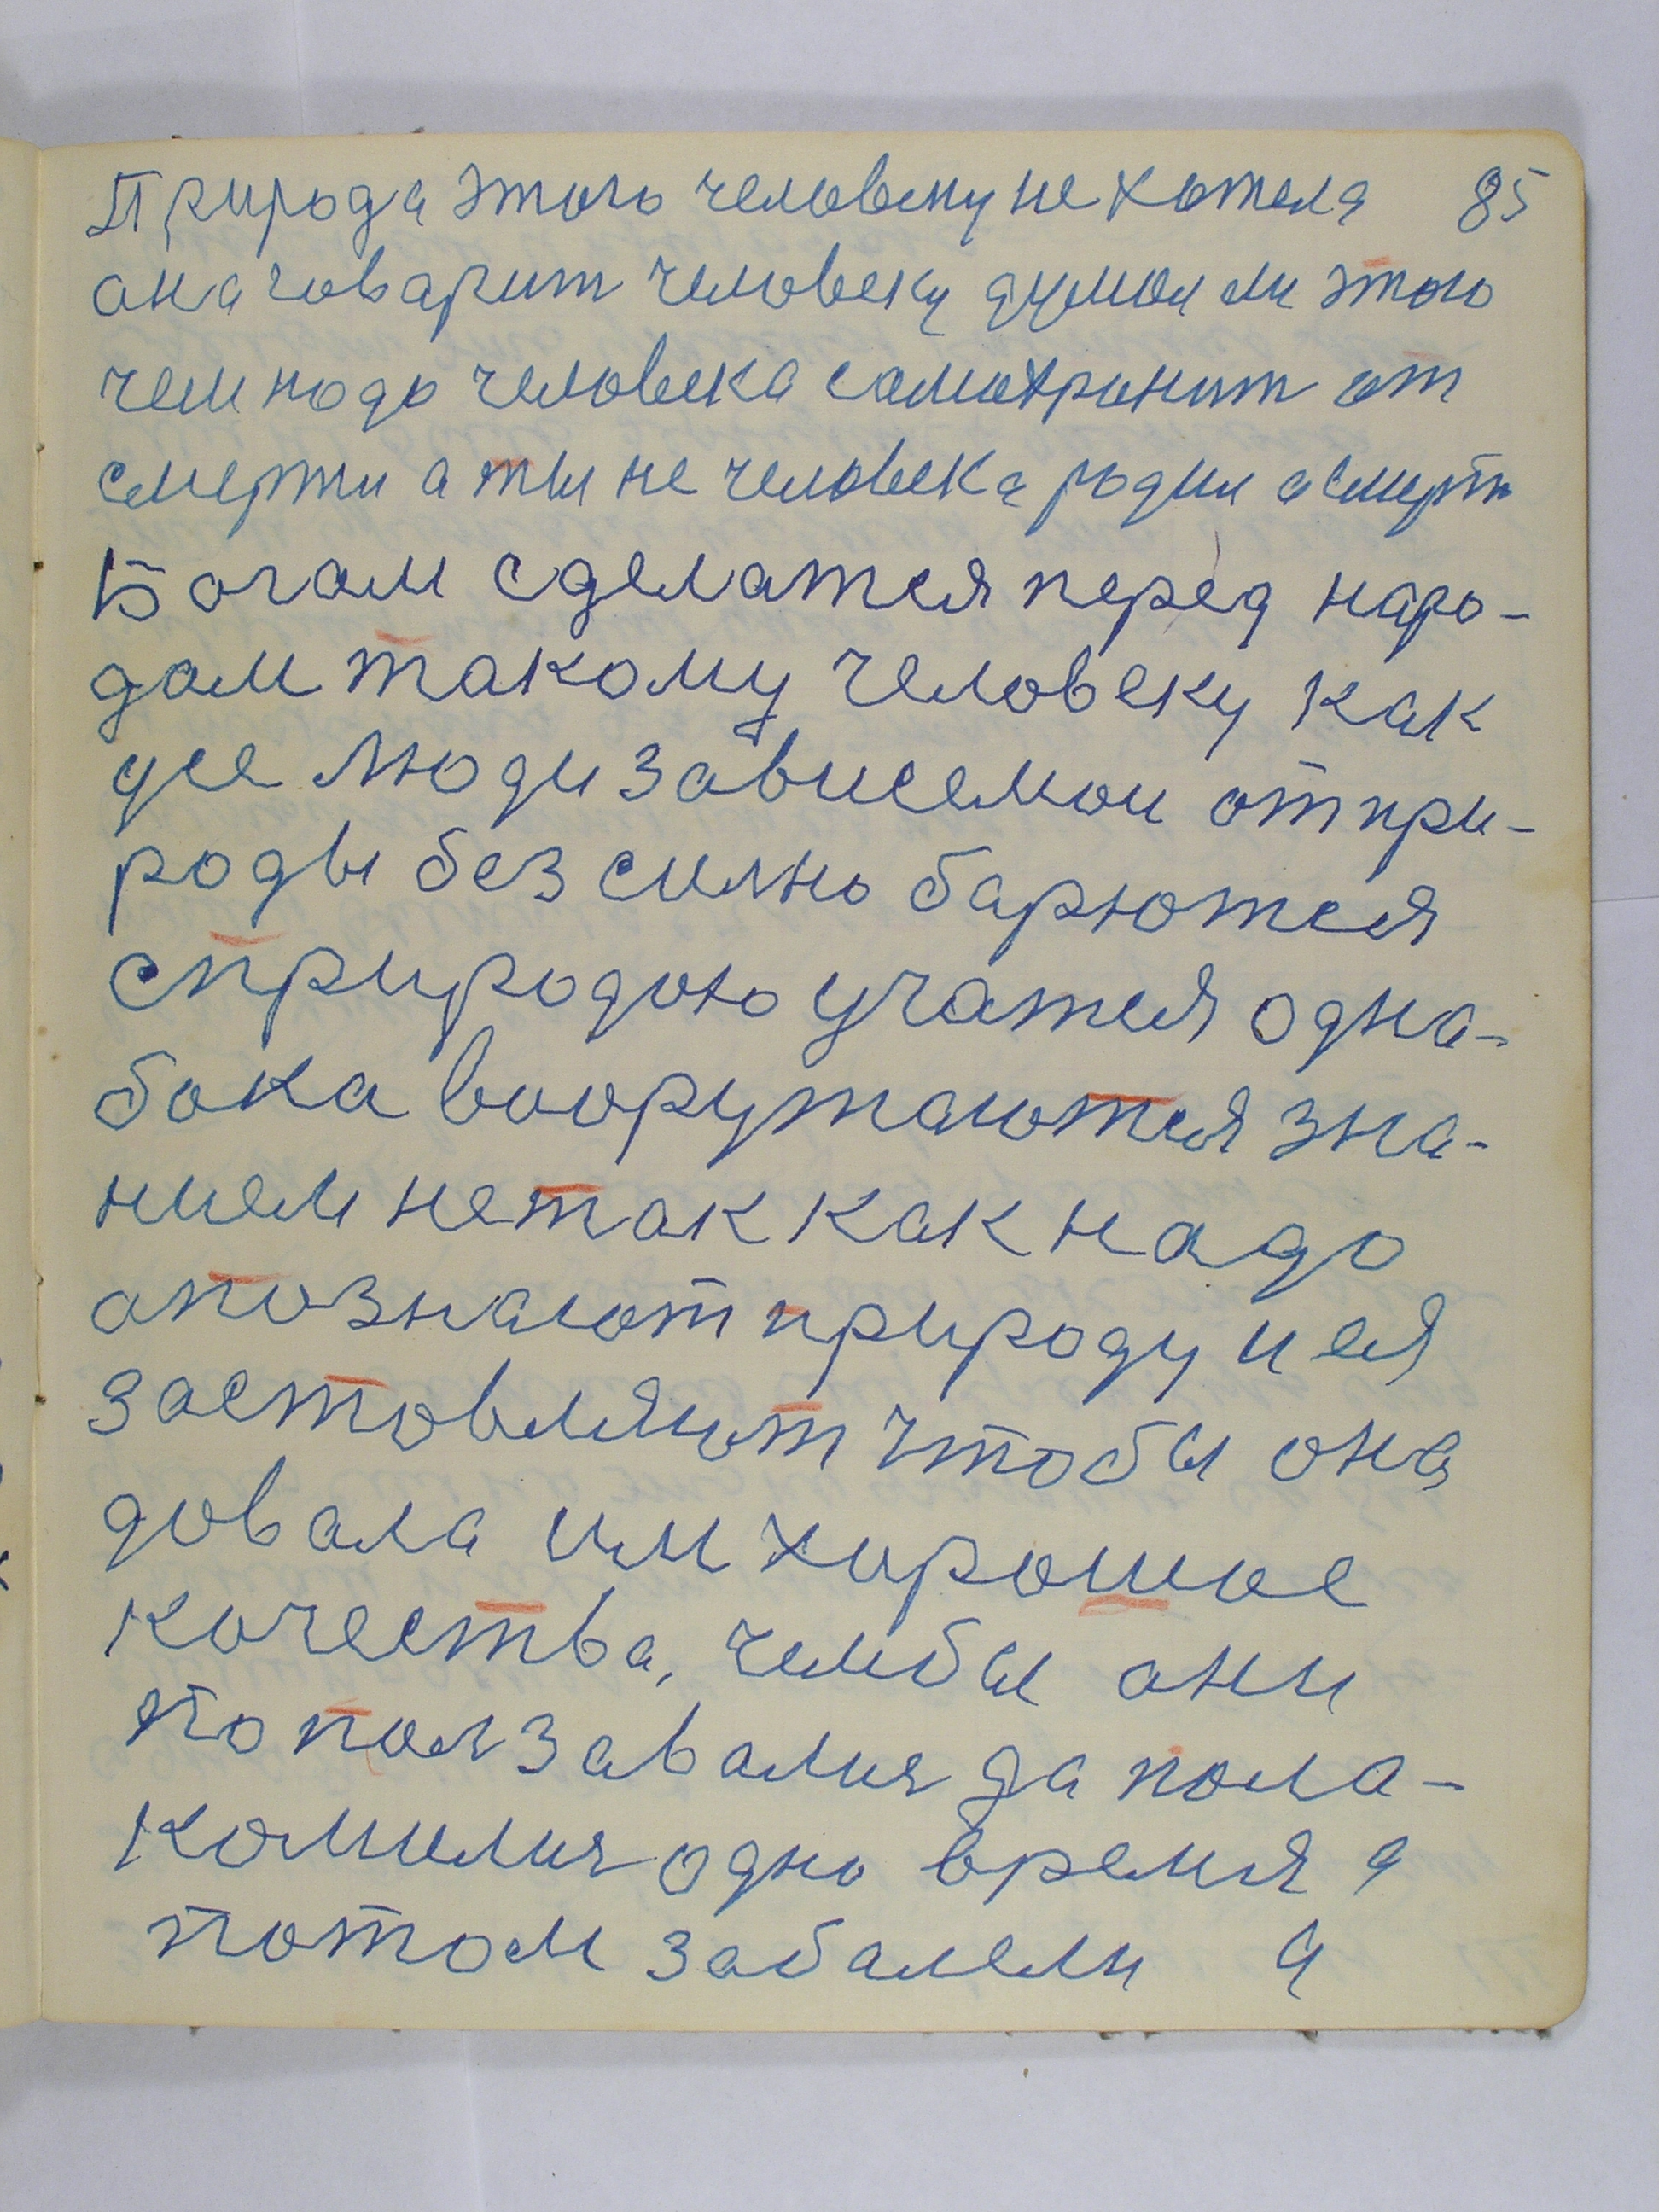 Природа этого человеку не хотела 85
она говарит человеку думал ли этого
чем надо человека самохранит от
смерти а ты не человека родил а смерть
Богам сделатся перед наро-
дам такому человеку как
усе люди зависемои от при-
роды без силно барются
с природою учатся одна-
бока вооружаются зна-
нием не так как надо
апознают природу и ея
заставляют чтобы она
давала им хорошое
качества, чембы они
попользавалися да пола-
комилися одно время а
потом забалели а